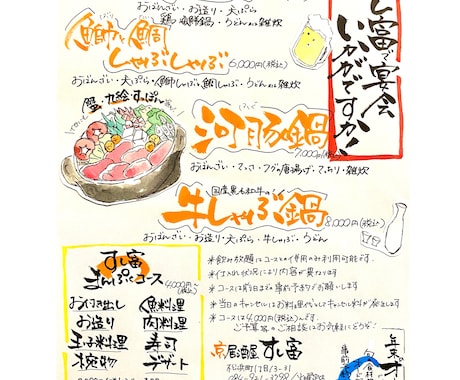 すし富で宴会
いかがですか!
おばんざい・お造り・天ぷら
鶏or海鮮鍋・うどんor雑炊
鰤と鯛
しゃぶしゃぶ
6,000円(税込)
おばんざい・天ぷら・鰤しゃぶと鯛しゃぶ・うどんor雑炊
蟹・九絵・すっぽん
河豚鍋
7,000円(税込)
おばんざい・てっさ・フグの唐揚げ・てっちり・雑炊
国産黒毛和牛の
牛しゃぶ鍋
8,000円(税込)
おばんざい・お造り・天ぷら・牛しゃぶ・うどん
すし富
まんぷくコース
4,000円
お付き出し
魚料理
お造り
肉料理
玉子料理
寿司
椀物
デザート
※飲み放題はコースのご利用のみ利用可能です。
※仕入れ状況により内容が異なります
※コースは前日までに要予約でお願い
※当日のキャンセルはお料理代としてキャンセル料が発生します
※コースは4,000円(税込)〜です。
ご予算等のご相談はお気軽にどうぞ!
京居酒屋 すし富
松浜町1丁目3-31